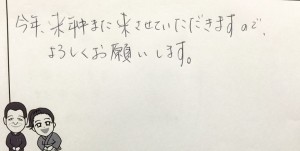 今年、来年また来させていただきますので、
よろしくお願いします。